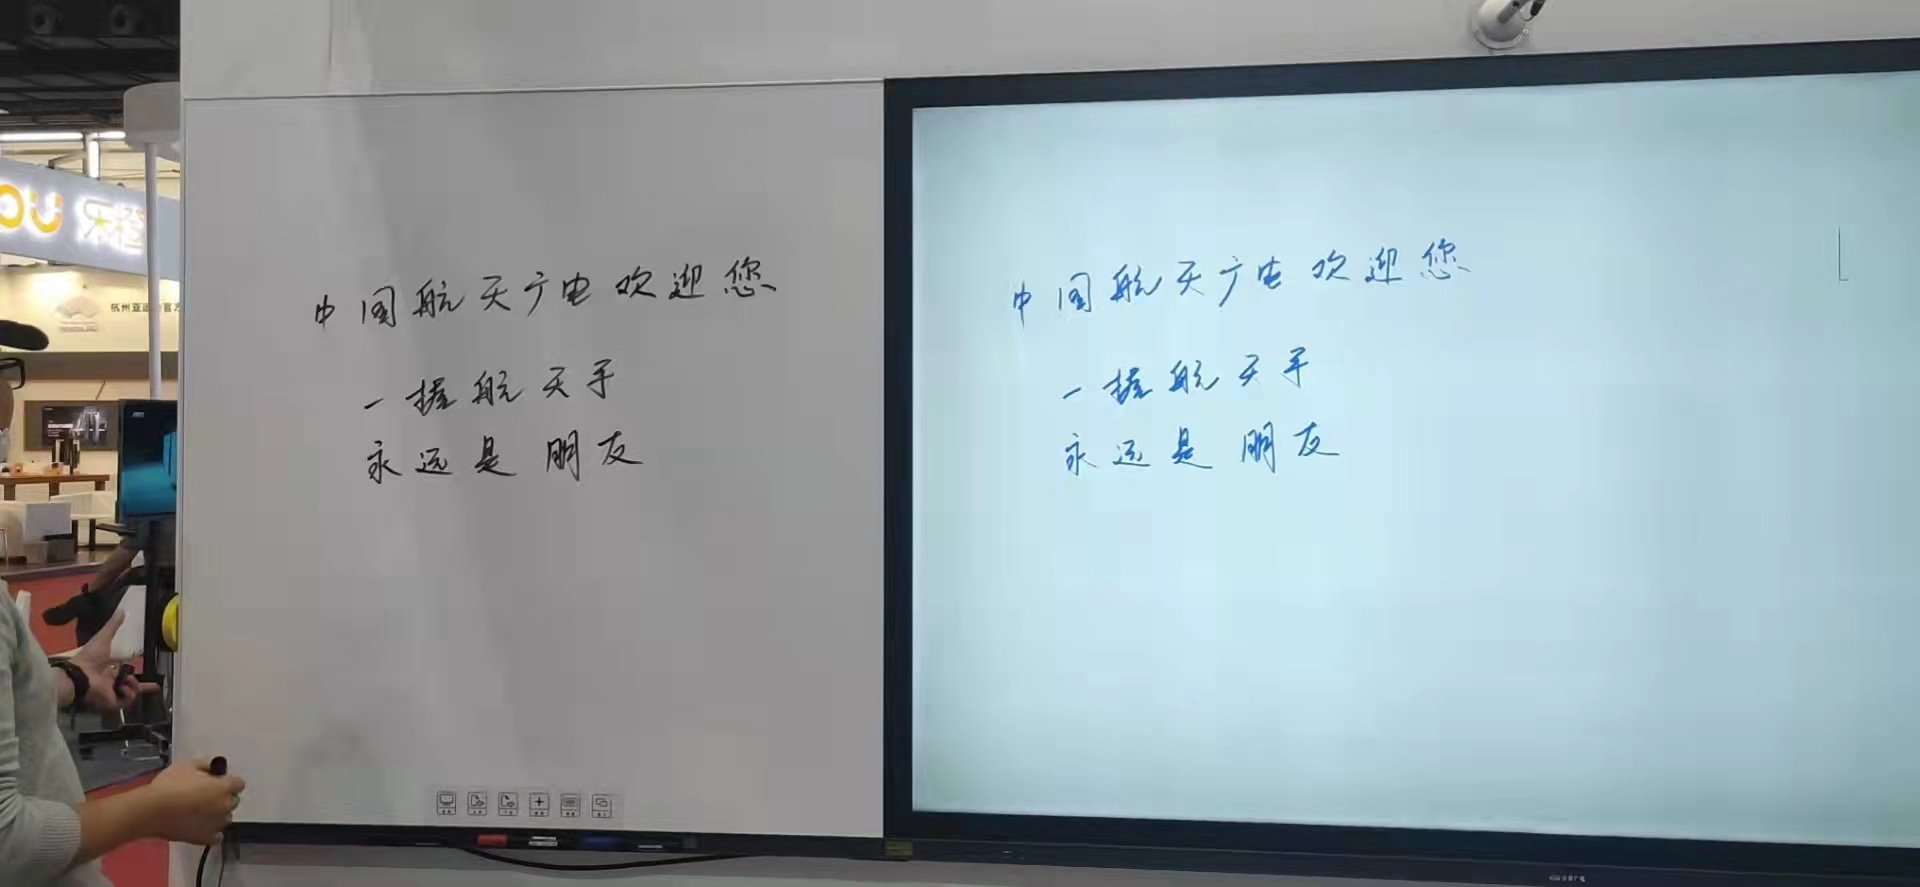 OU 乐橙
杭州亚运 官方
中国航天广电欢迎您
一握航天手
永远是朋友
中国航天广电欢迎您
一握航天手
永远是朋友